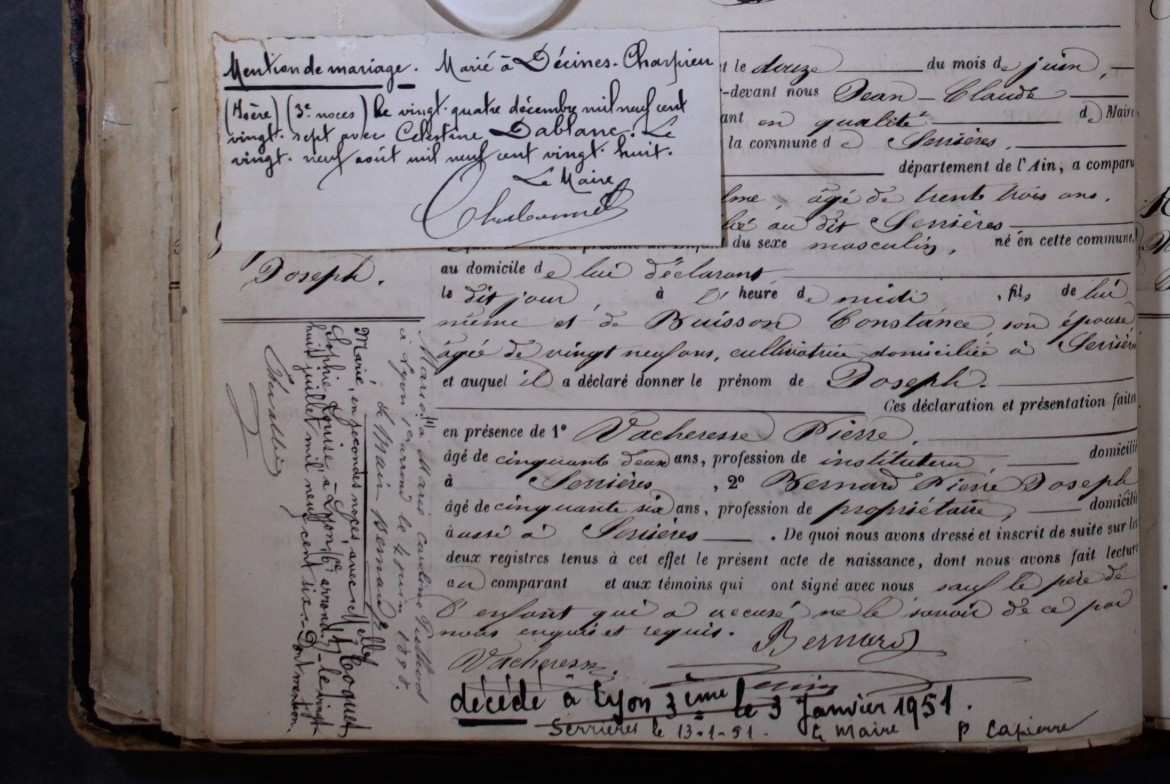 Mention de mariage. Marié à Décines-Charpieu
(Isère) (3e noces) le vingt-quatre décembre mil neuf cent
vingt-sept avec Célestine Dablanc. Le
vingt-neuf août mil neuf cent vingt-huit.
Le Maire
t le douze du mois de juin,
-devant nous Jean-Claude
ant en qualité de Maire
la commune de Serrières.
département de l'Ain, a comparu
âgé de trente trois ans.
lié au dit Serrières
du sexe masculin, né en cette commune,
Joseph.
au domicile de lui déclarant
le dit jour, à l'heure de midi, fils de lui
même et de Buisson Constance, son épouse
âgée de vingt neuf ans, cultivatrice domiciliée à Serrières
et auquel il a déclaré donner le prénom de Joseph.
Ces déclaration et présentation faites
en présence de 1° Vacheresse Pierre,
âgé de cinquante deux ans, profession de instituteur, domicilié
à Serrières, 2° Bernard Pierre Joseph
âgé de cinquante six ans, profession de propriétaire, domicilié
aussi à Serrières. De quoi nous avons dressé et inscrit de suite sur les
deux registres tenus à cet effet le présent acte de naissance, dont nous avons fait lecture
au comparant et aux témoins qui ont signé avec nous sauf le père de
l'enfant qui a recusé ne le savoir de ce par
nous enquis et requis.
Bernard
Vacheresse
Marié à Marie Caroline
à Lyon le juin 188
le Maire Bernard
Marié, en secondes noces, avec Melle Coquet
Sophie Louise, à Lyon (6e arrondt), le vingt
huit juillet mil neuf cent six. Dont mention.
décédé à Lyon 3ème le 3 Janvier 1951.
Serrières le 13-1-51. Le Maire P Capierre